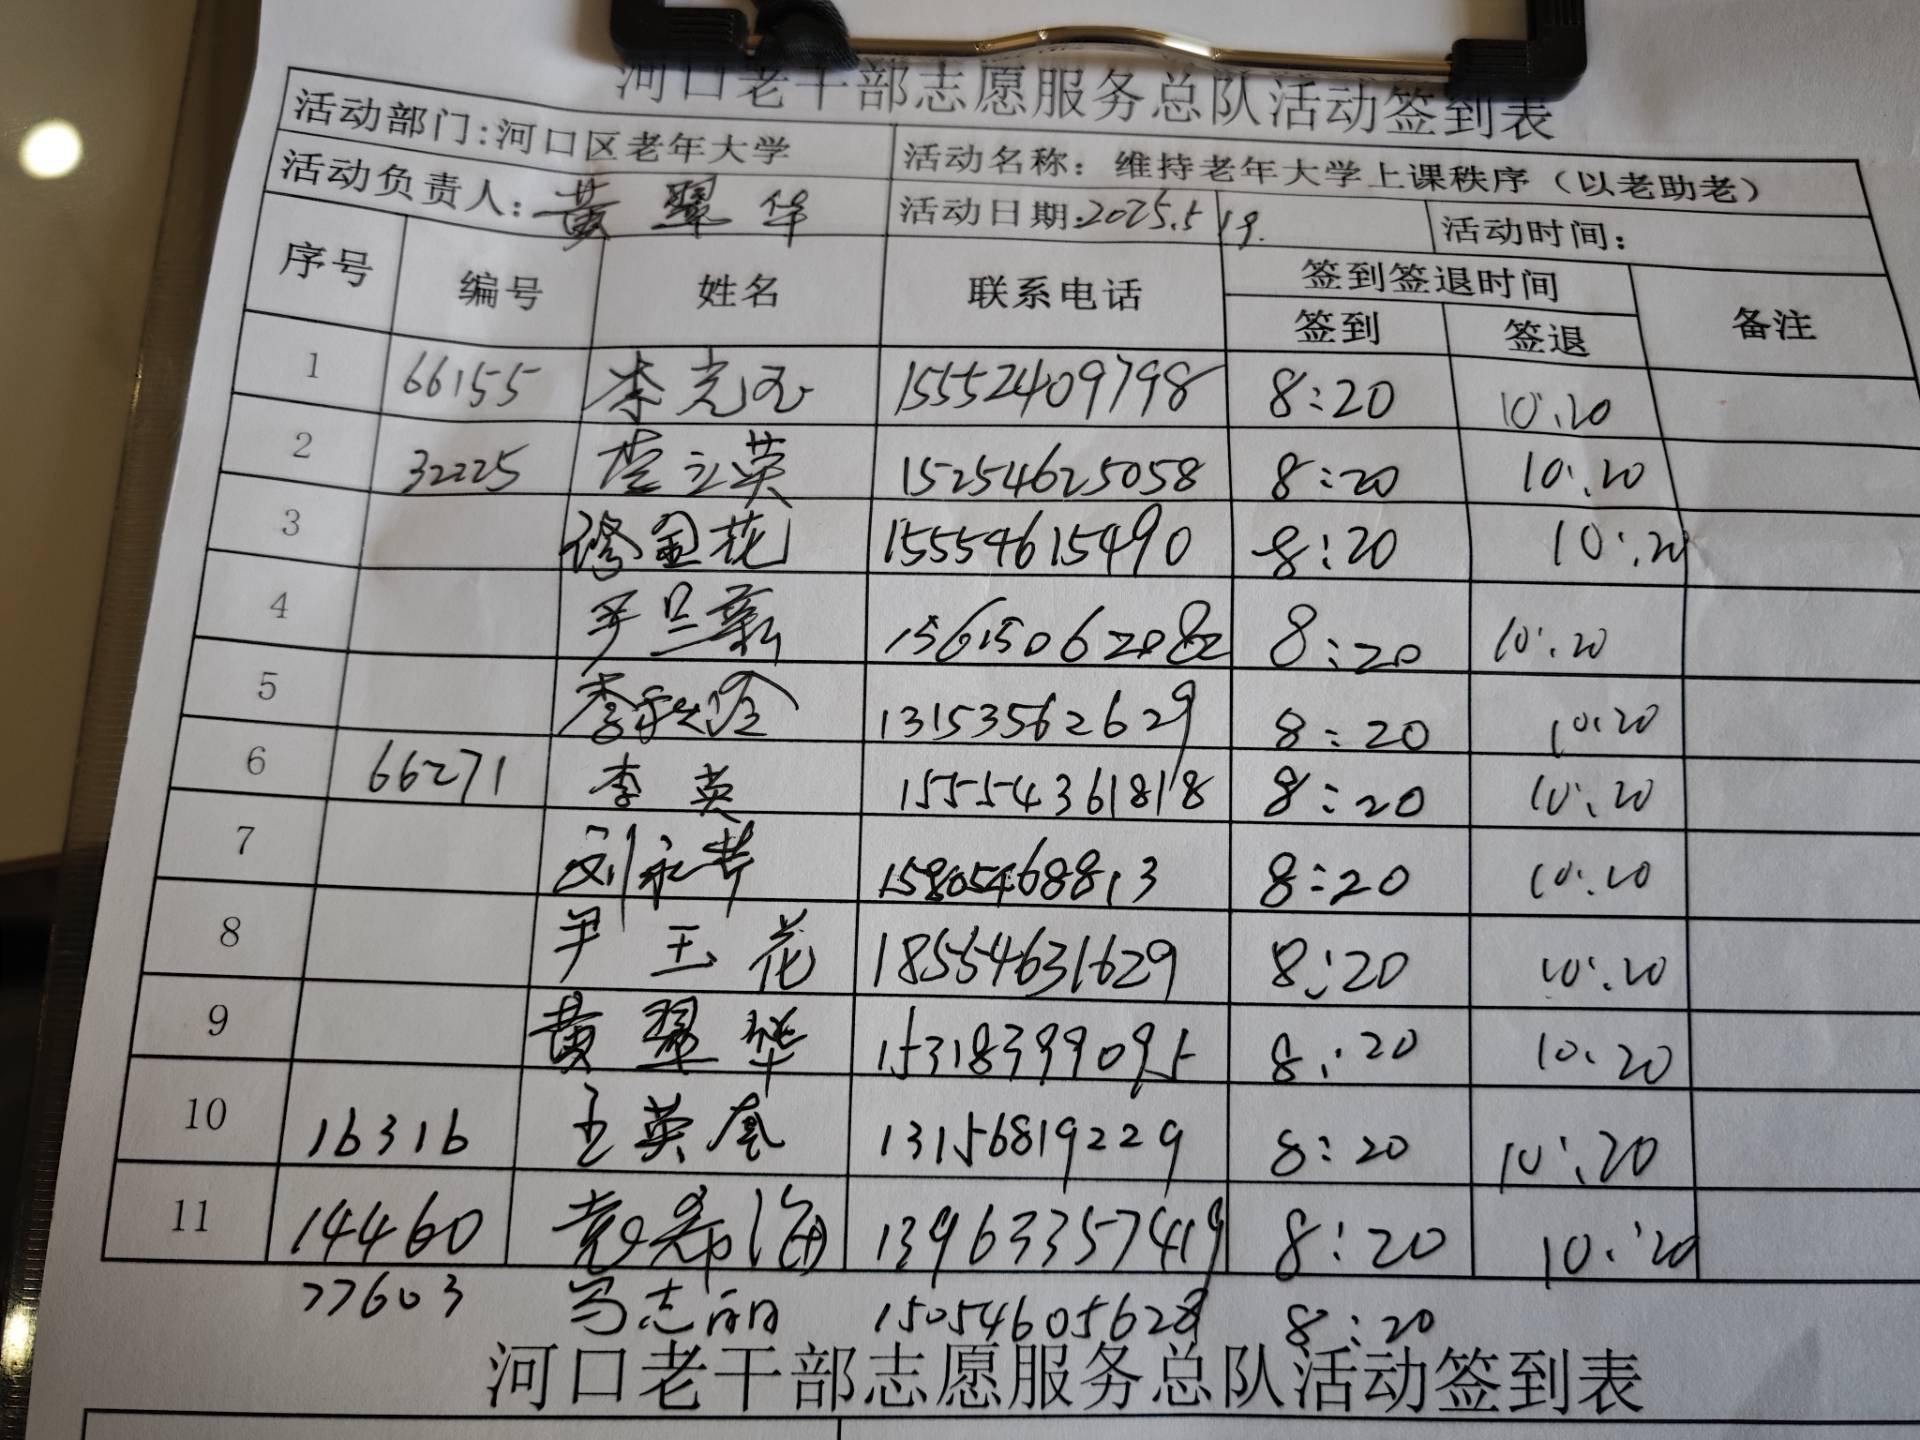 河口老干部志愿服务总队活动签到表
活动部门:河口区老年大学 活动名称：维持老年大学上课秩序（以老助老）
活动负责人:黄翠华 活动日期:2025.5 19. 活动时间：
序号 编号 姓名 联系电话 签到签退时间 备注
签到 签退
1 66155 李光玉 15552409798 8:20 10:20
2 32225 李立英 15254625058 8:20 10:20
3 金花 15554615490 8:20 10:20
4 尹兰 15615062082 8:20 10:20
5 李秋玲 13153562629 8:20 10:20
6 66271 李英 15554361818 8:20 10:20
7 刘永芳 15805468813 8:20 10:20
8 尹玉花 18554631629 8:20 10:20
9 黄翠华 15318399095 8:20 10:20
10 16316 王英 13156819229 8:20 10:20
11 14460 党希海 13963357419 8:20 10:20
77603 马志丽 15054605628 8:20
河口老干部志愿服务总队活动签到表